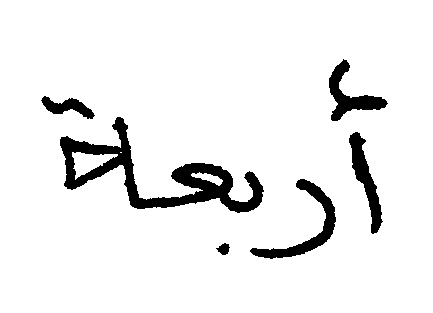 أربعة